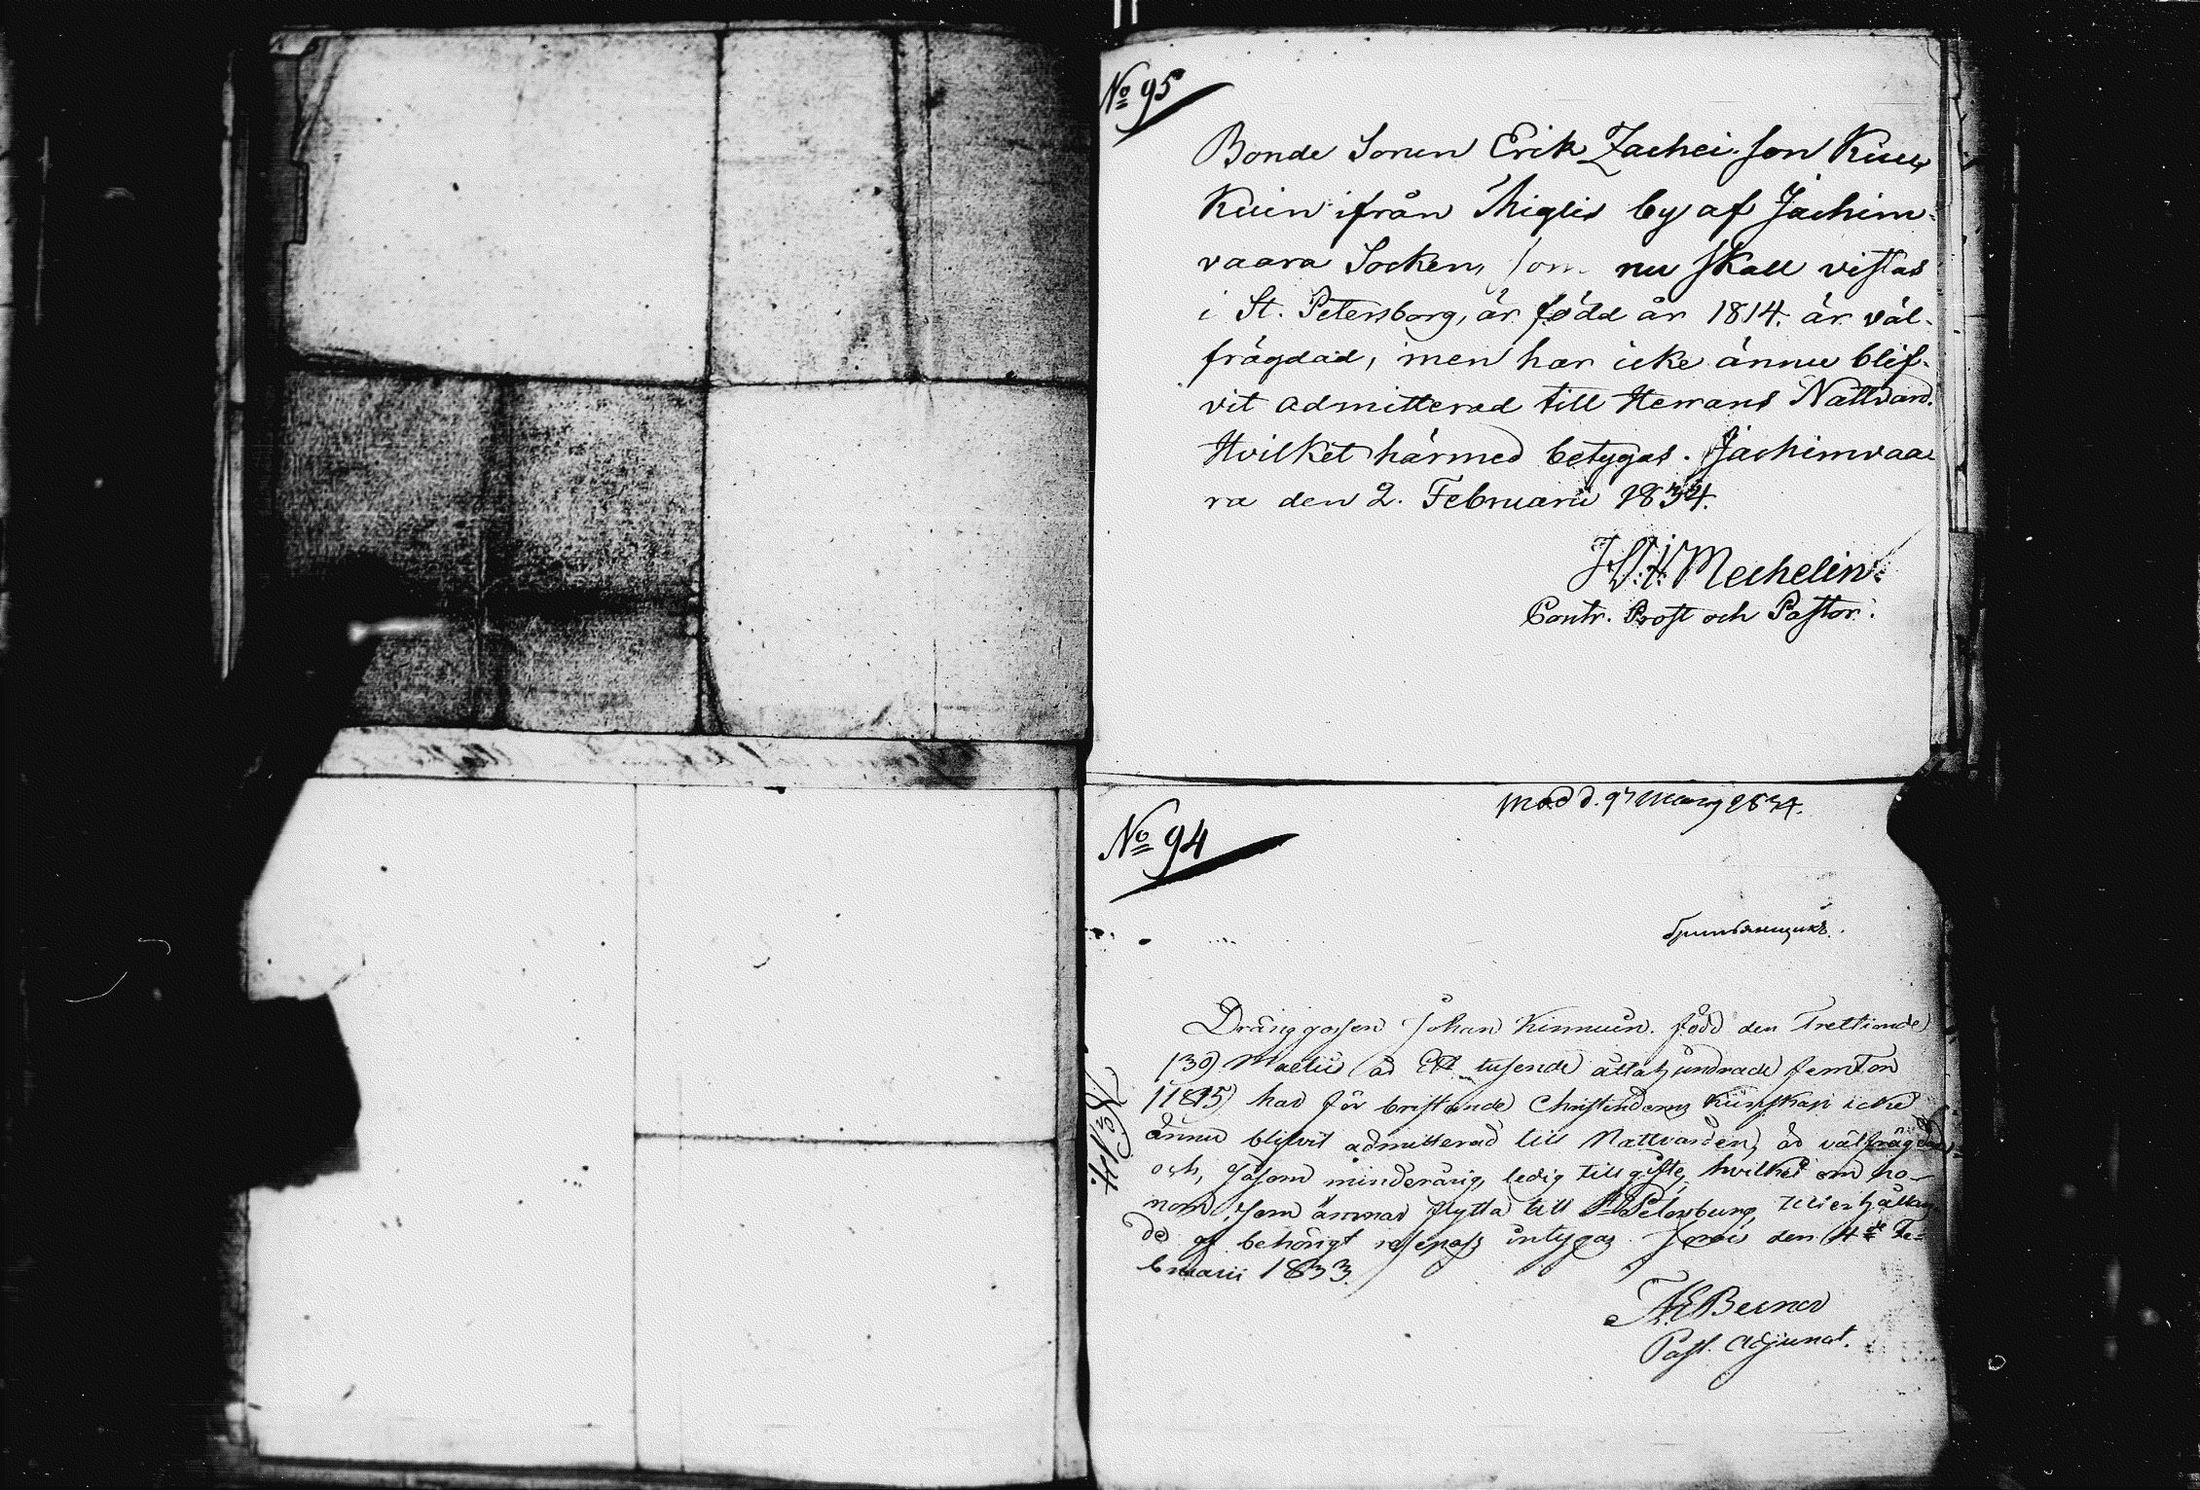 No 95
Bonde Sonen Erik Zachei son Kuu,
kuin ifrån Miglis by af Jachim-
vaara Socken, som nu skall vistas
i St. Petersborg, är född år 1814. är väl-
frägdad, men har icke ännu blif-
vit admitterad till Herrans Nattvard.
Hvilket härmed betygas. Jachimvaa-
ra den 2. Februarii 1834.
Mechelin.
Contr. Prost och Pastor.
d. 9 Mars 1834.
No 94
Dränggossen Johan Kinnuin född den Trettionde
(30) Martii år Ett tusende åttahundrade femton
(1815) har för bristande Christendoms kunskap icke
ännu blifvit admitterad till Nattvarden, är välfrägdad
och, såsom minderårig, ledig till gifte, hvilket om ho-
nom, som ämnar flytta till St Petersburg, till erhållan-
de af behörigt respass intygas. den 4de Fe-
bruarii 1833.
No 14.
Past. Adjunct.